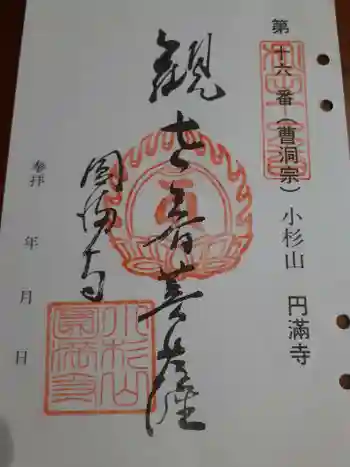 第十六番(曹洞宗)小杉山 円満寺
觀世音菩薩
圓满寺
参拝 年 月 日
小杉山
圓満寺